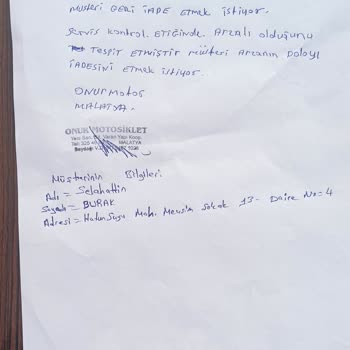 müşteri GERİ İADE ETMEK İSTİYOR.
Servis kontrol ETİĞİNDE. Arzalı olduğunu
TESPİT ETMİŞTİR müşteri Arzanın Dolayı
İADESİNİ ETMEK İSTİYOR.
ONUR MOTOS
MALATYA.
ONUR MOTOSİKLET
Yapı Koop.
MALATYA
Müşterinin Bilgileri
Adı = Selahattin
Soyadı = BURAK
Adresi = Hatunsuyu Mah. Mevsim Sokak 13 - Daire No = 4